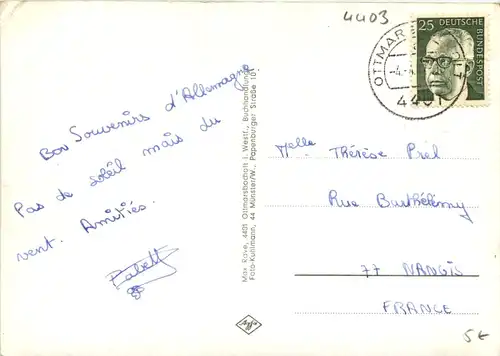 4403
25 DEUTSCHE BUNDESPOST
OTTMAR
4401
Bon Souvenirs d'Allemagne
Pas de soleil mais du
vent. Amitiés.
Max Rave, 4401 Ottmarsbocholt i. Westf., Buchhandlung
Foto-Kuhlmann, 44 Münster/W., Papenburger Straße 10
Melle Thérèse Piel
Rue Barthélémy
77 NANGIS
FRANCE
5€